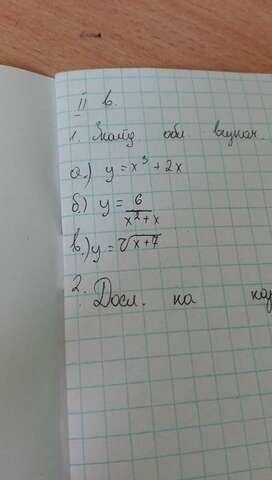 II в.
1. Знайд обл визнач.
а.) y = x³ + 2x
б.) y = 6/(x² + x)
в.) y = √(x + 7)
2. Досл. на